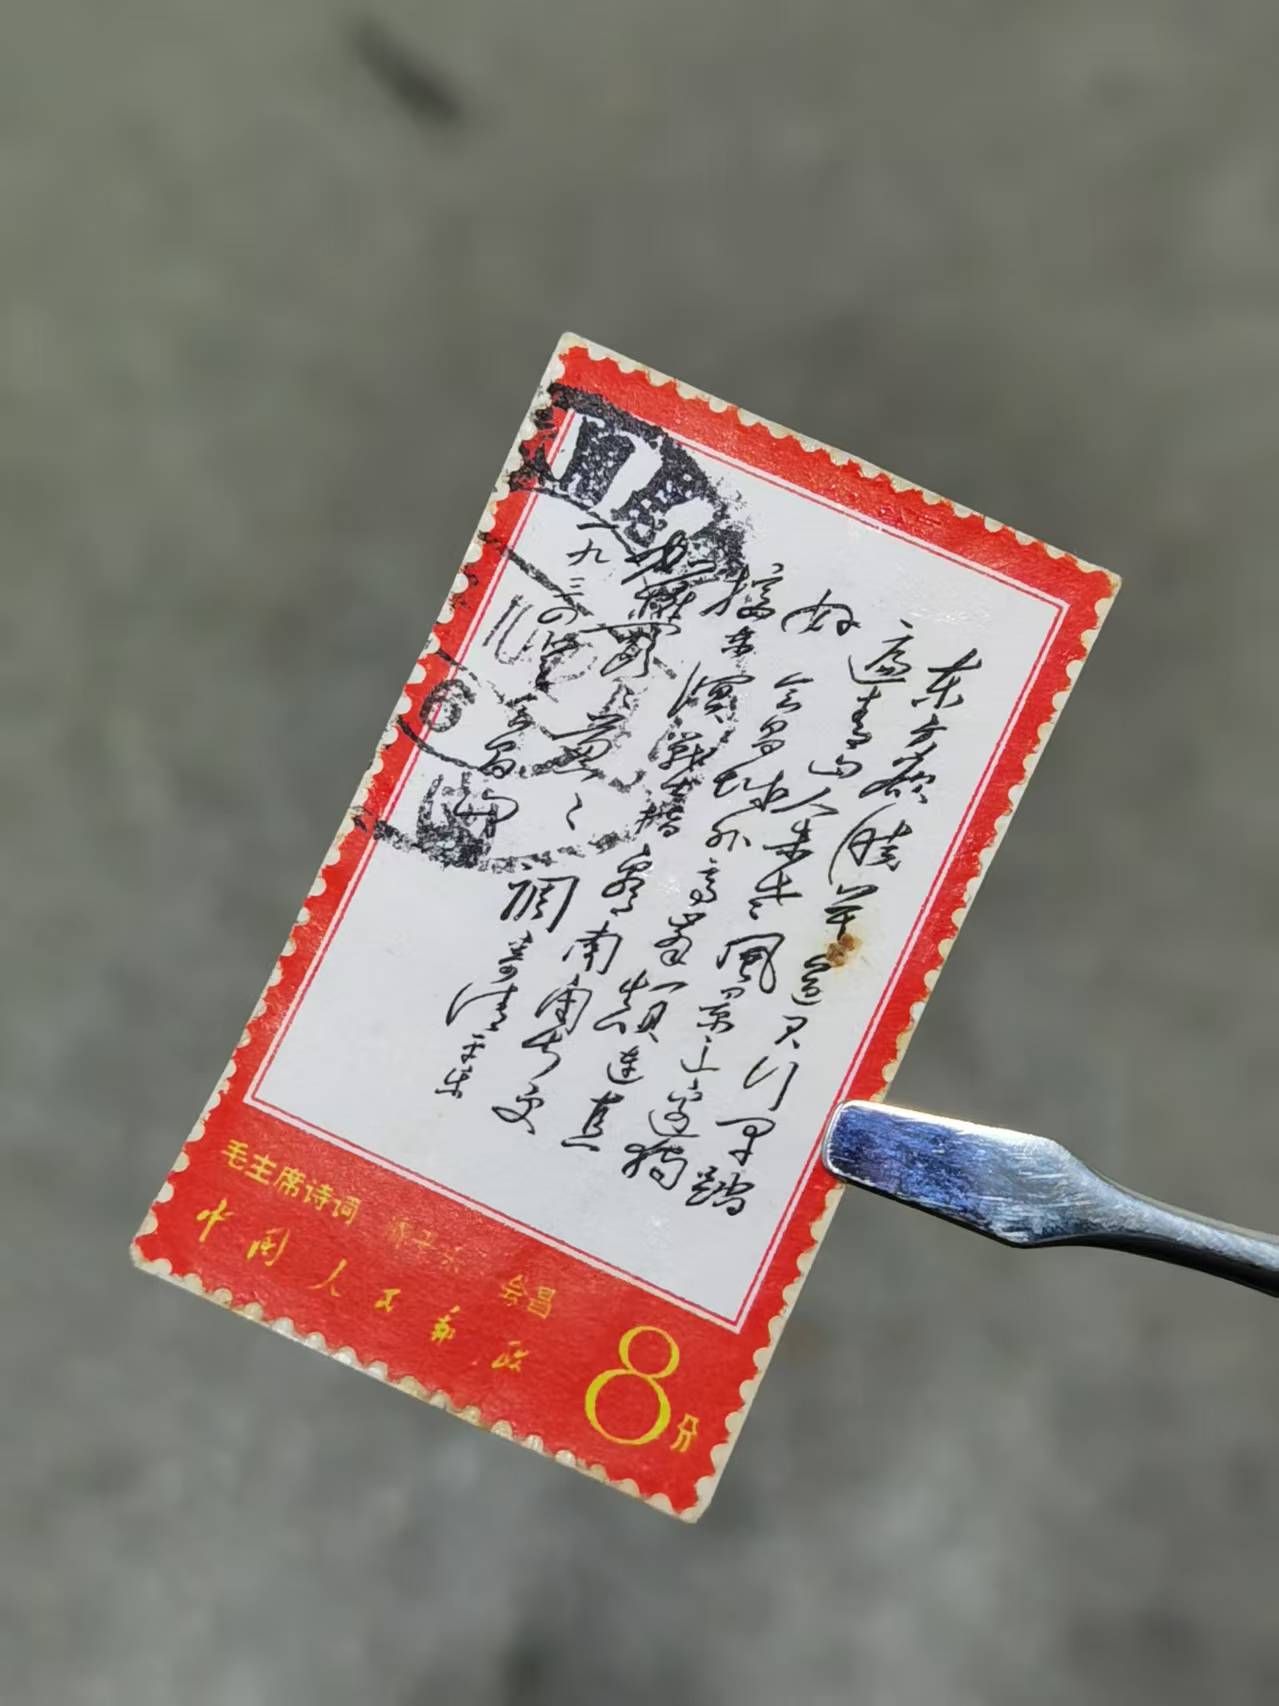 东方欲晓莫道君行早踏
遍青山人未老風景这边独
好会昌城外高峰顛连直
接东溟戰士指看南粤更
加鬱〻葱〻調寄清平乐
一九三四年登会昌山
6
毛主席诗词 清平乐 会昌
中国人民邮政
8分